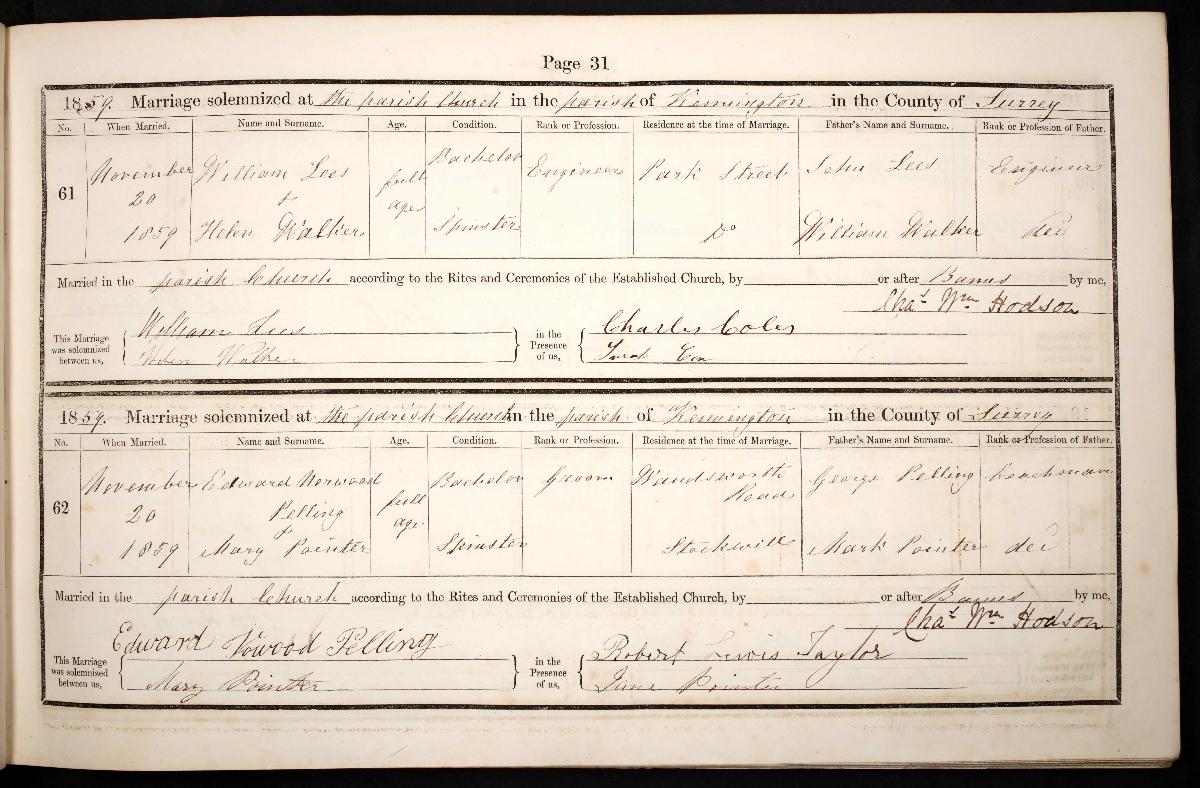 Page 31
1859. Marriage solemnized at the parish Church in the parish of Kennington in the County of Surrey
No. When Married. Name and Surname. Age. Condition. Rank or Profession. Residence at the time of Marriage. Father's Name and Surname. Rank or Profession of Father.
61 November 20 1859 William Lees & Helen Walker full age Bachelor Spinster Engineer Park Street Do John Lees William Walker Engineer dec
Married in the parish Church according to the Rites and Ceremonies of the Established Church, by or after Banns by me,
Chas Wm Hodson
This Marriage was solemnized between us, William Lees Helen Walker in the Presence of us, Charles Coles Sarah
1859. Marriage solemnized at the parish Church in the parish of Kennington in the County of Surrey
No. When Married. Name and Surname. Age. Condition. Rank or Profession. Residence at the time of Marriage. Father's Name and Surname. Rank or Profession of Father.
62 November 20 1859 Edward Norwood Pelling & Mary Pointer full age Bachelor Spinster Groom Wandsworth Road Stockwell George Pelling Mark Pointer Coachman dec
Married in the parish Church according to the Rites and Ceremonies of the Established Church, by or after Banns by me,
Chas Wm Hodson
This Marriage was solemnized between us, Edward Norwood Pelling Mary Pointer in the Presence of us, Robert Lewis Taylor Pointer